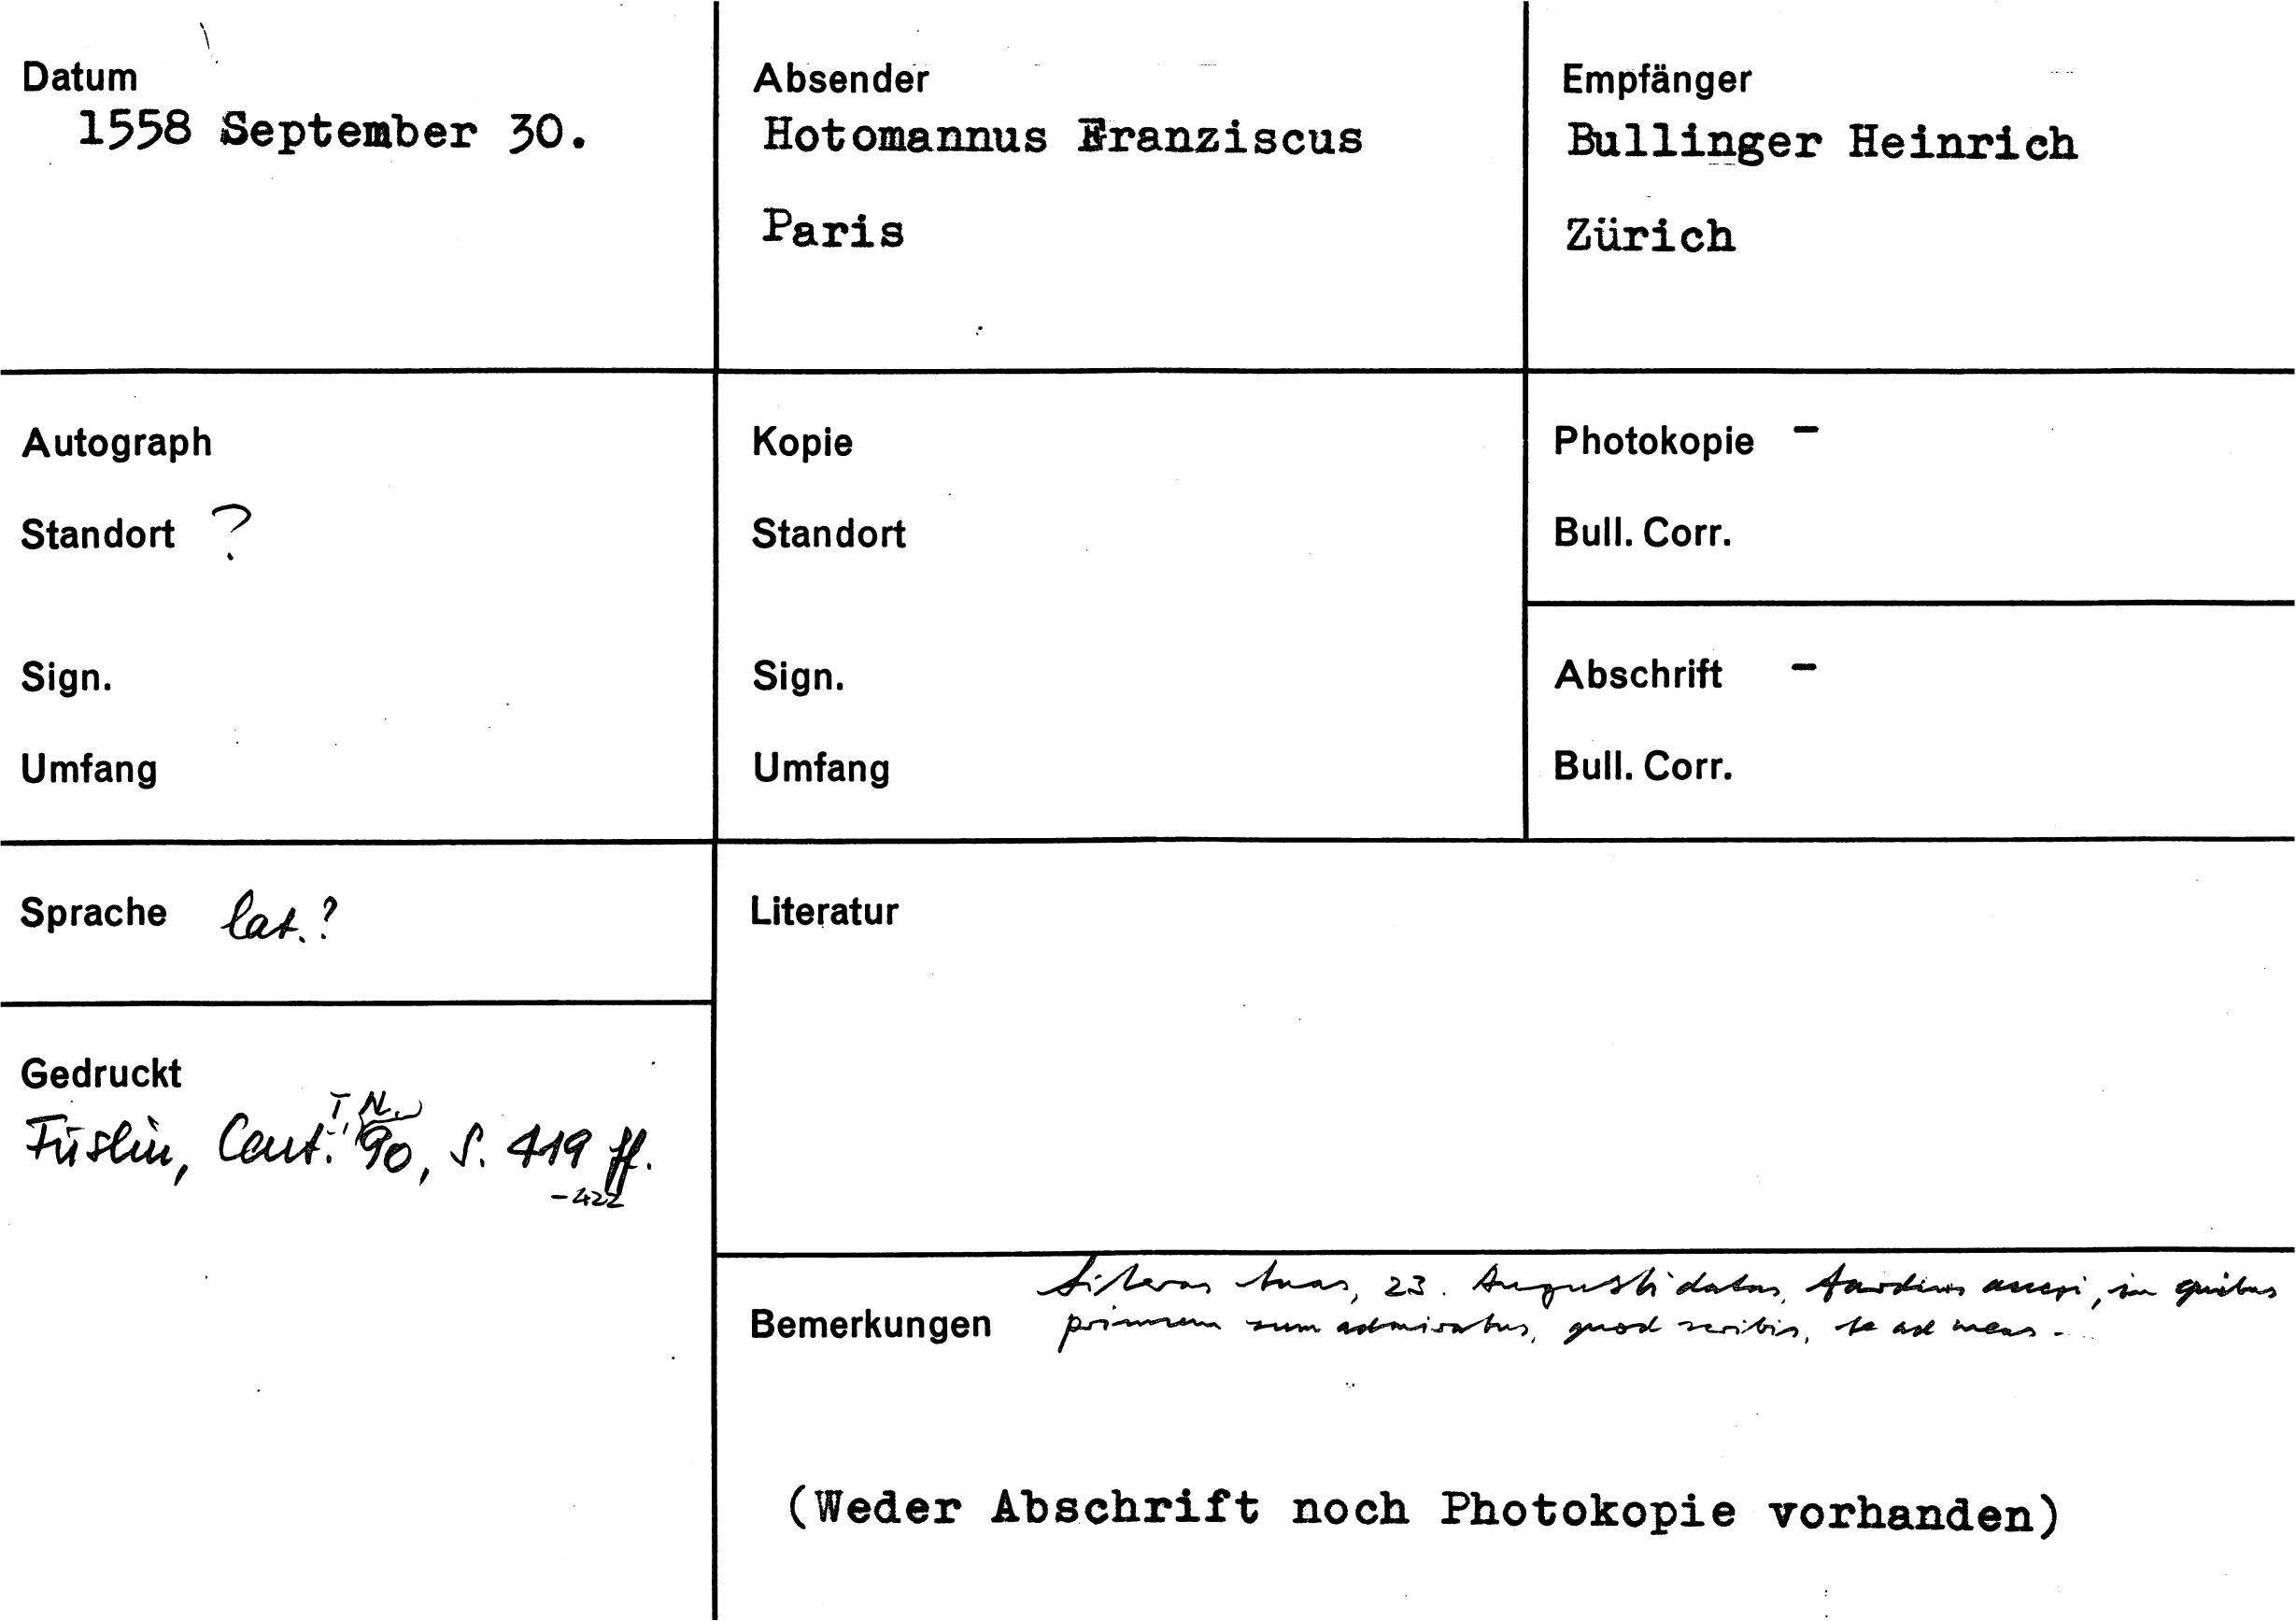 Datum
1558 September 30.
Absender
Hotomannus Franziscus
Paris
Empfänger
Bullinger Heinrich
Zürich
Autograph
Standort ?
Sign.
Umfang
Kopie
Standort
Sign.
Umfang
Photokopie -
Bull. Corr.
Abschrift -
Bull. Corr.
Sprache lat.?
Gedruckt
Füslin, Cent. I, N. 90, S. 419 ff.
-422
Literatur
Bemerkungen
Literas tuas, 23. Augusti datas, tardius accepi, in quibus
primum sum admiratus, quod scribis, te ad meas -
(Weder Abschrift noch Photokopie vorhanden)